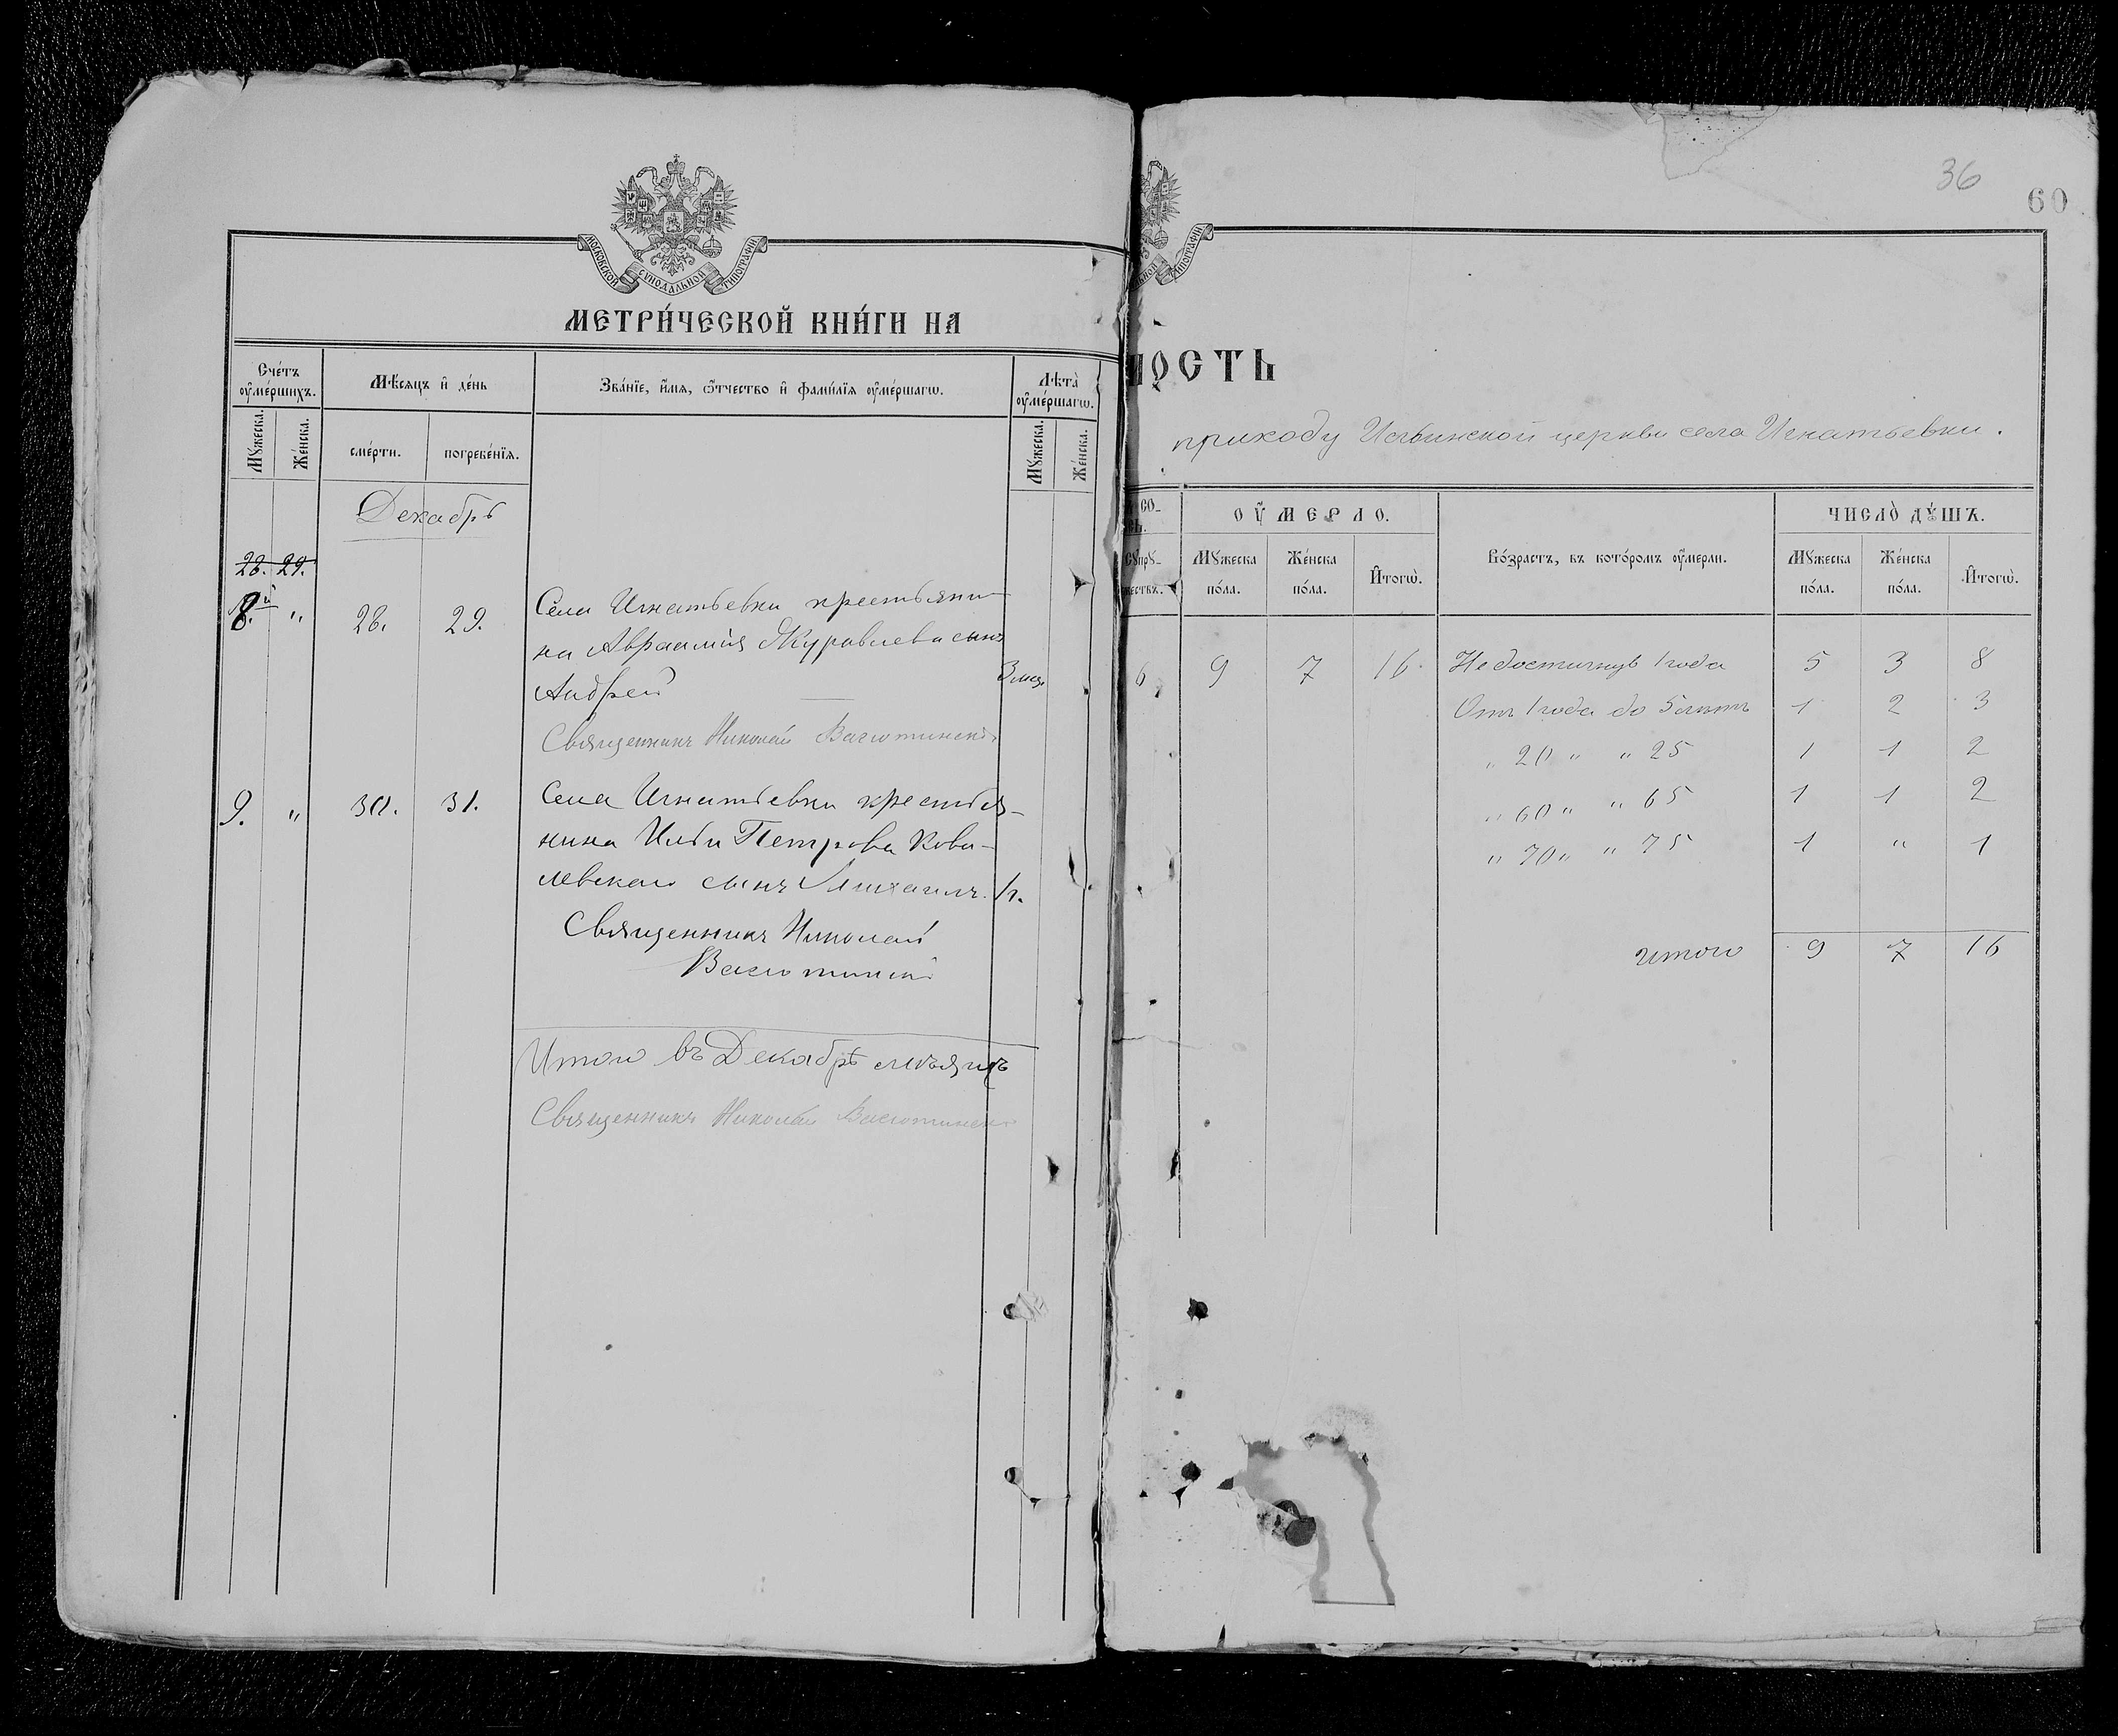 МОСКОВСКОЙ СѴНОДАЛЬНОЙ ТИПОГРАФІИ
МЕТРИ́ЧЕСКОЙ КНИ́ГИ НА
Сче́тъ оу҆ме́ршихъ.
Мѣ́сяцъ и҆ де́нь
Зва́нїе, и҆́мя, ѻ҆́тчество и҆ фами́лїя оу҆ме́ршагѡ.
Лѣта̀ оу҆ме́ршагѡ.
Мꙋжеска.
Же́нска.
сме́рти.
погребе́нїя.
Мꙋжеска.
Же́нска.
Декабрь
28. 29.
8. " 28. 29. Села Игнатьевки крестьяни-
на Авраамія Журавлева сынъ
Андрей 3 мец.
Священникъ Николай Васютинскій
9. " 30. 31. Села Игнатьевки крестья-
нина Ильи Петрова Кова-
левскаго сынъ Михаилъ. 1 г.
Священникъ Николай
Васютинскій
Итого въ Декабрѣ мѣсяцѣ
Священникъ Николай Васютинскій
36
60
НОСТЬ
приходу церкви села Игнатьевки.
ОУ҆МЕРЛО.
ЧИСЛО̀ ДꙊШЪ.
Мꙋжеска по́ла.
Же́нска по́ла.
И҆того̀.
Во́зрастъ, въ кото́ромъ оу҆мерли.
Мꙋжеска по́ла.
Же́нска по́ла.
И҆того̀.
6 9 7 16. Недостигнувъ 1 года 5 3 8
Отъ 1 года до 5 лѣтъ 1 2 3
" 20 " " 25 1 1 2
" 60 " " 65 1 1 2
" 70 " " 75 1 " 1
итого 9 7 16